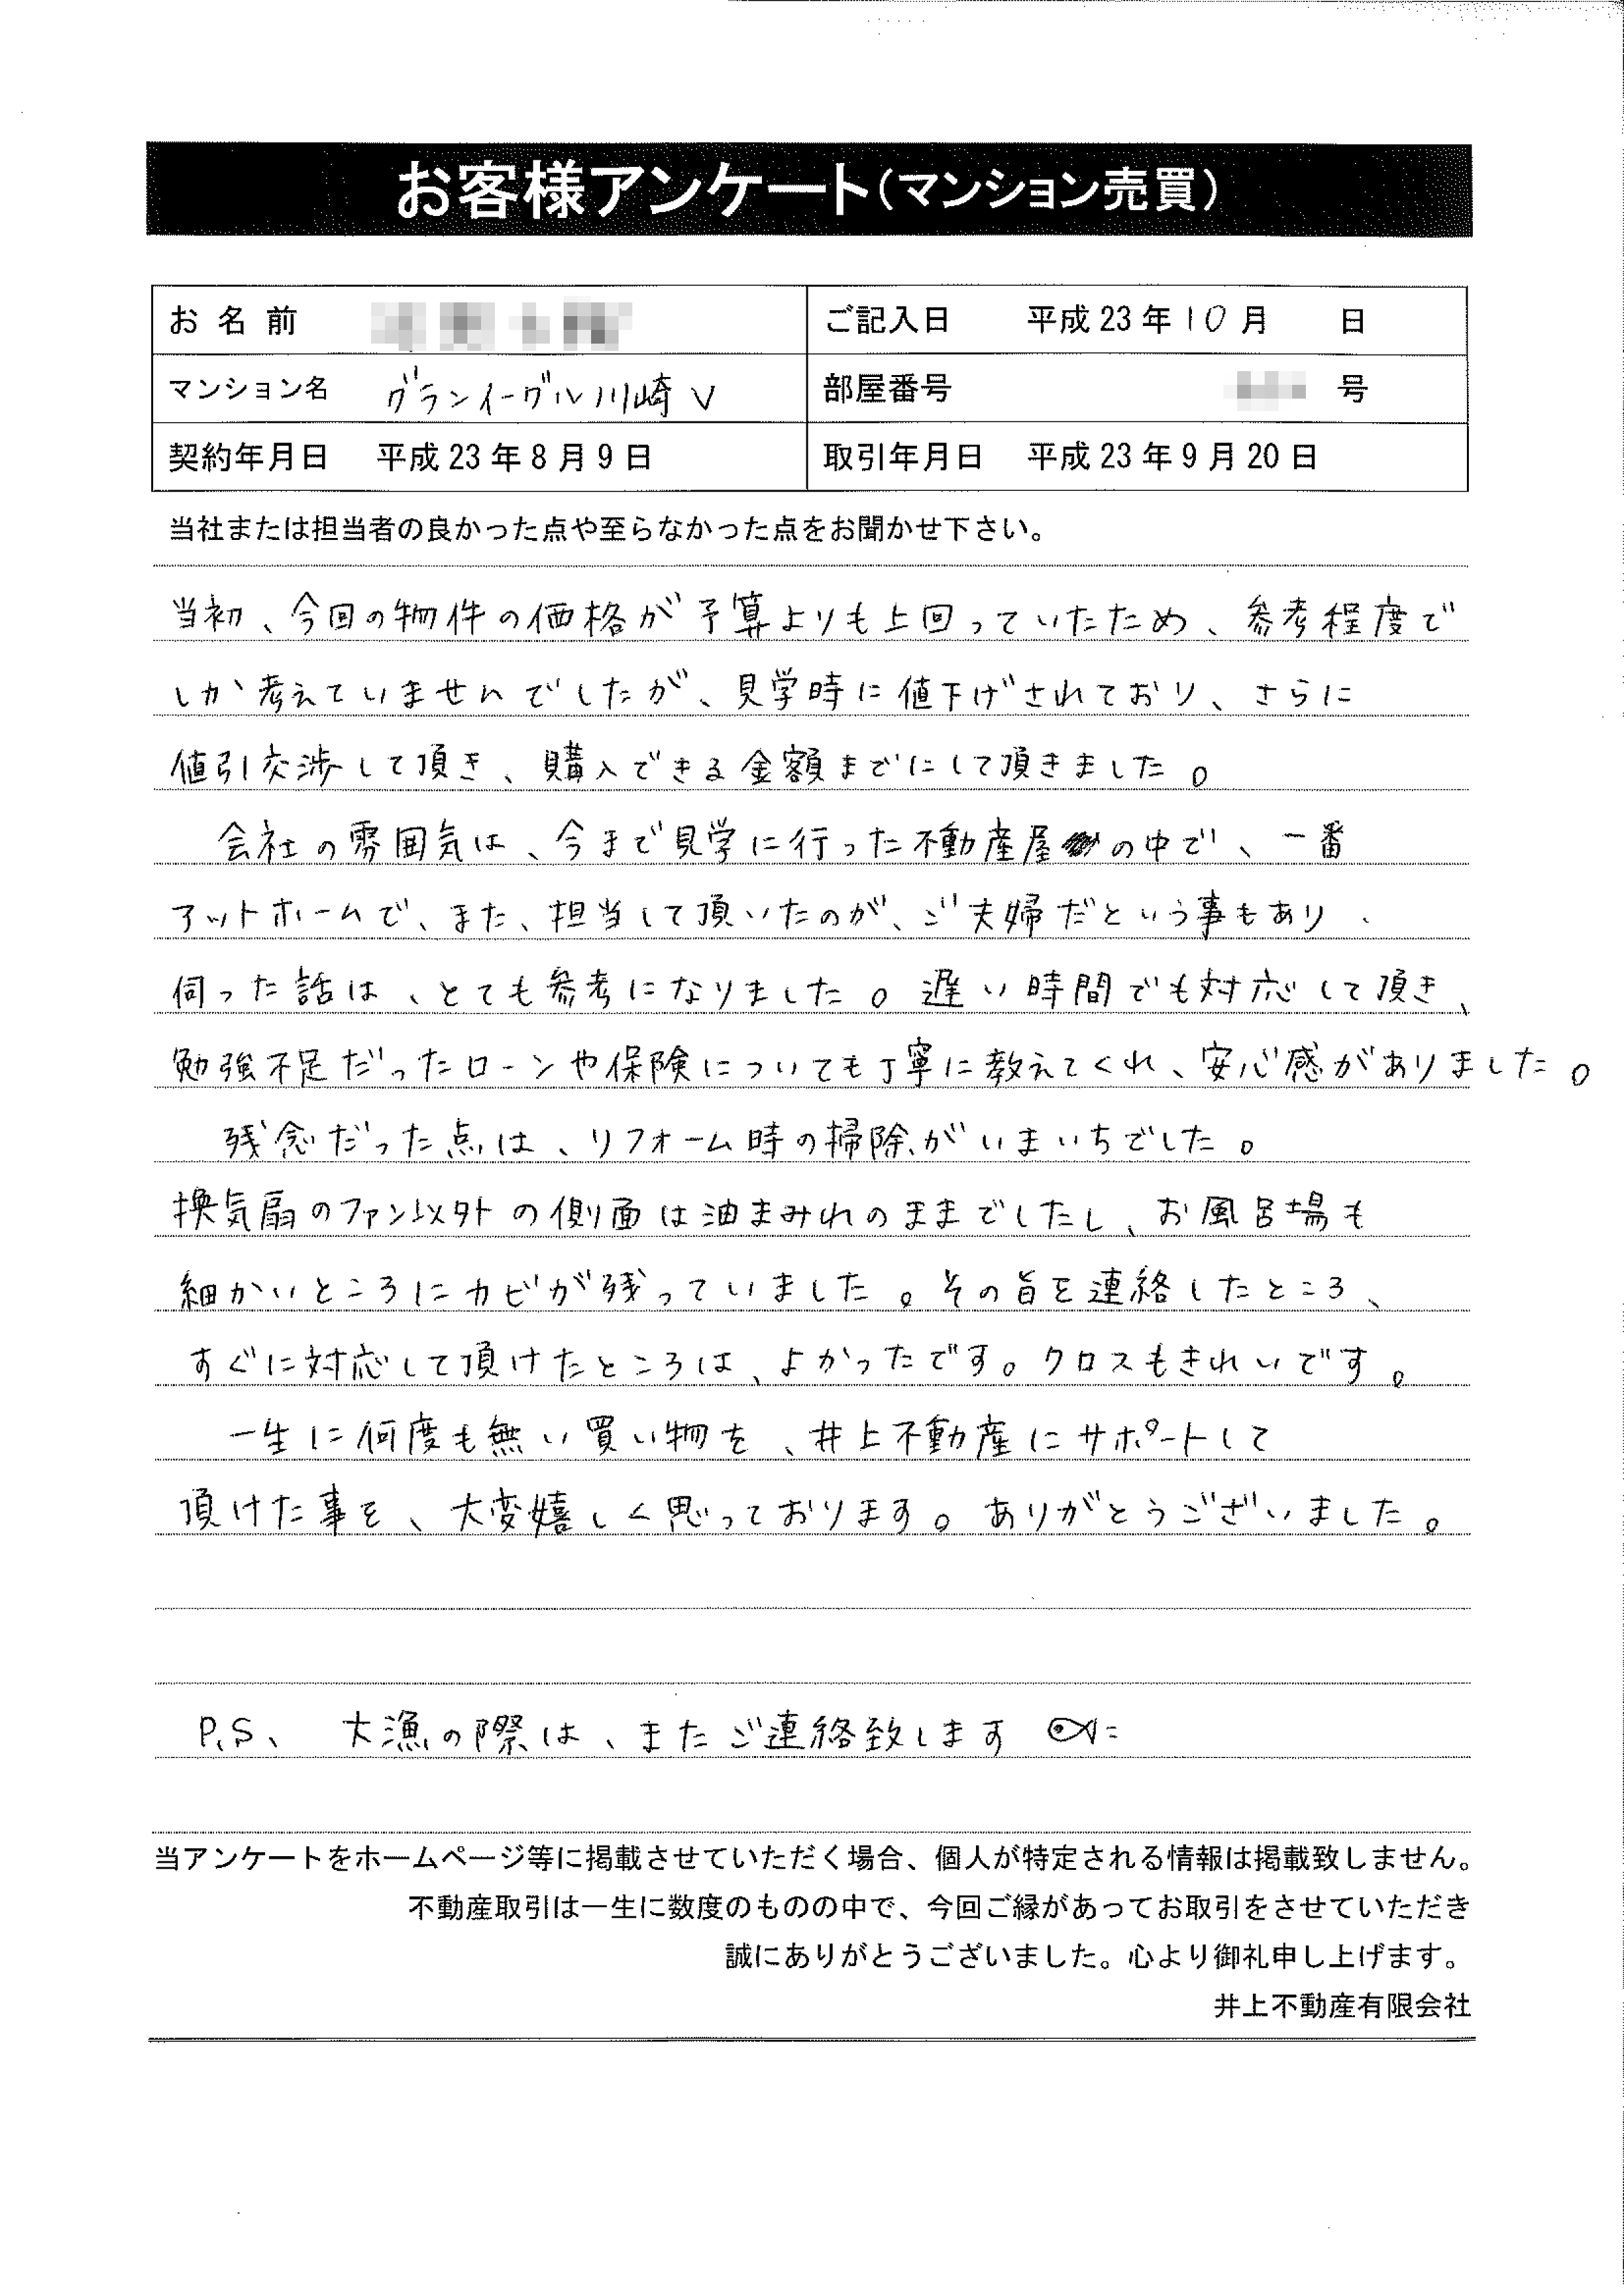 お客様アンケート（マンション売買）
お名前
ご記入日 平成23年10月 日
マンション名 グランイーグル川崎V
部屋番号 号
契約年月日 平成23年8月9日
取引年月日 平成23年9月20日
当社または担当者の良かった点や至らなかった点をお聞かせ下さい。
当初、今回の物件の価格が予算よりも上回っていたため、参考程度で
しか考えていませんでしたが、見学時に値下げされており、さらに
値引交渉して頂き、購入できる金額までにして頂きました。
会社の雰囲気は、今まで見学に行った不動産屋の中で、一番
アットホームで、また、担当して頂いたのが、ご夫婦だという事もあり、
伺った話は、とても参考になりました。遅い時間でも対応して頂き、
勉強不足だったローンや保険についても丁寧に教えてくれ、安心感がありました。
残念だった点は、リフォーム時の掃除がいまいちでした。
換気扇のファン以外の側面は油まみれのままでしたし、お風呂場も
細かいところにカビが残っていました。その旨を連絡したところ、
すぐに対応して頂けたところは、よかったです。クロスもきれいです。
一生に何度も無い買い物を、井上不動産にサポートして
頂けた事を、大変嬉しく思っております。ありがとうございました。
P.S、 大漁の際は、またご連絡致します
当アンケートをホームページ等に掲載させていただく場合、個人が特定される情報は掲載致しません。
不動産取引は一生に数度のものの中で、今回ご縁があってお取引をさせていただき
誠にありがとうございました。心より御礼申し上げます。
井上不動産有限会社